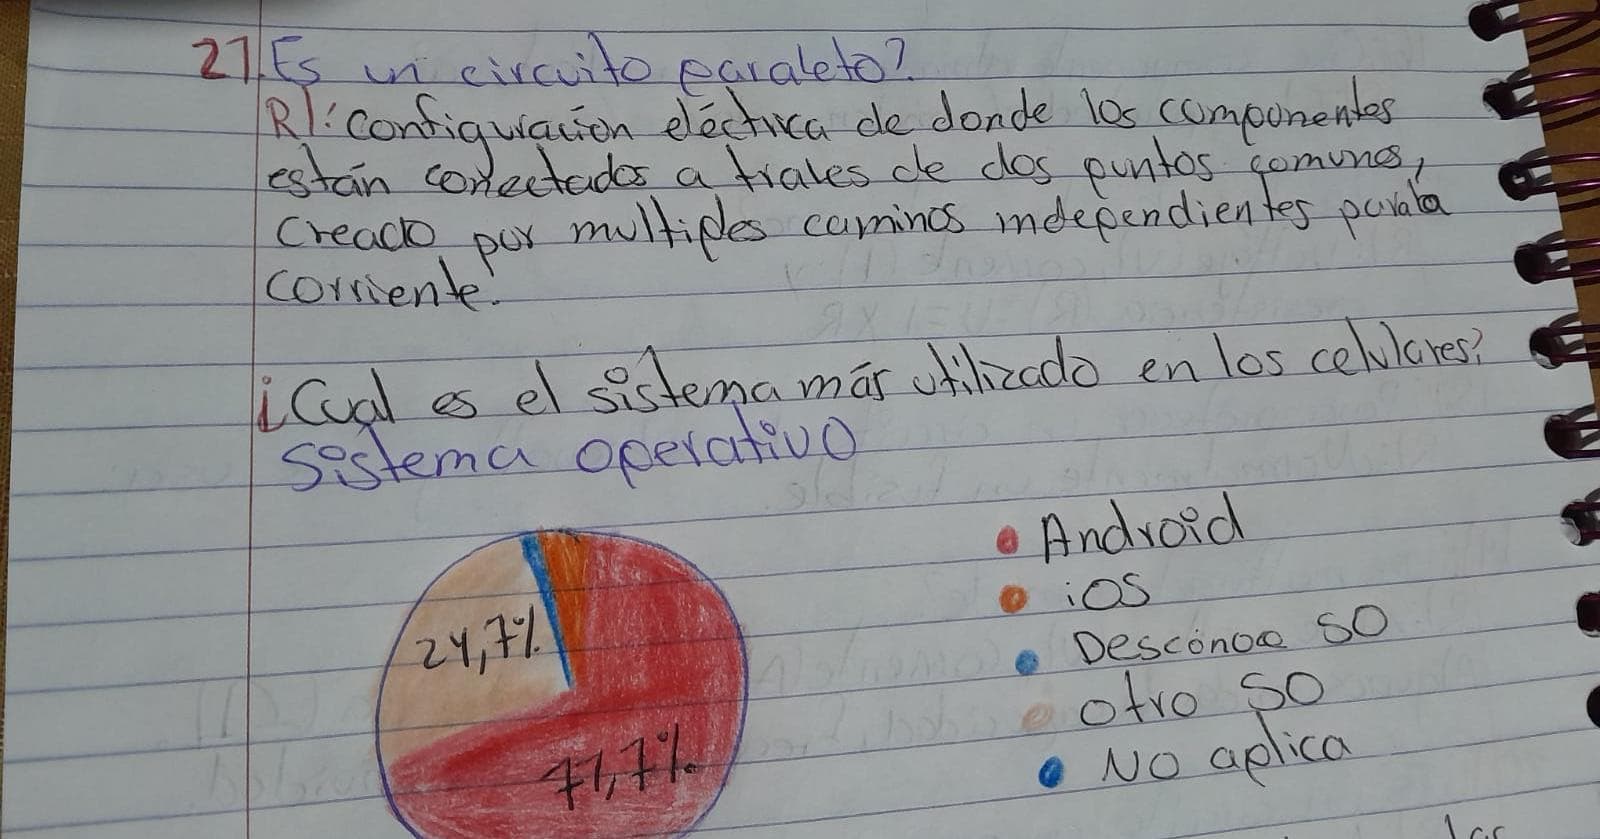 27. Es un circuito paraleto?
R/: Configuración eléctrica de donde los componentes
están conectados a trales de dos puntos comunes,
Creado por multiples caminos independientes para la
corriente.
¿Cual es el sistema más utilizado en los celulares?
Sistema operativo
Android
iOS
24,7%
Desconoce SO
otro SO
71,7%
No aplica
las